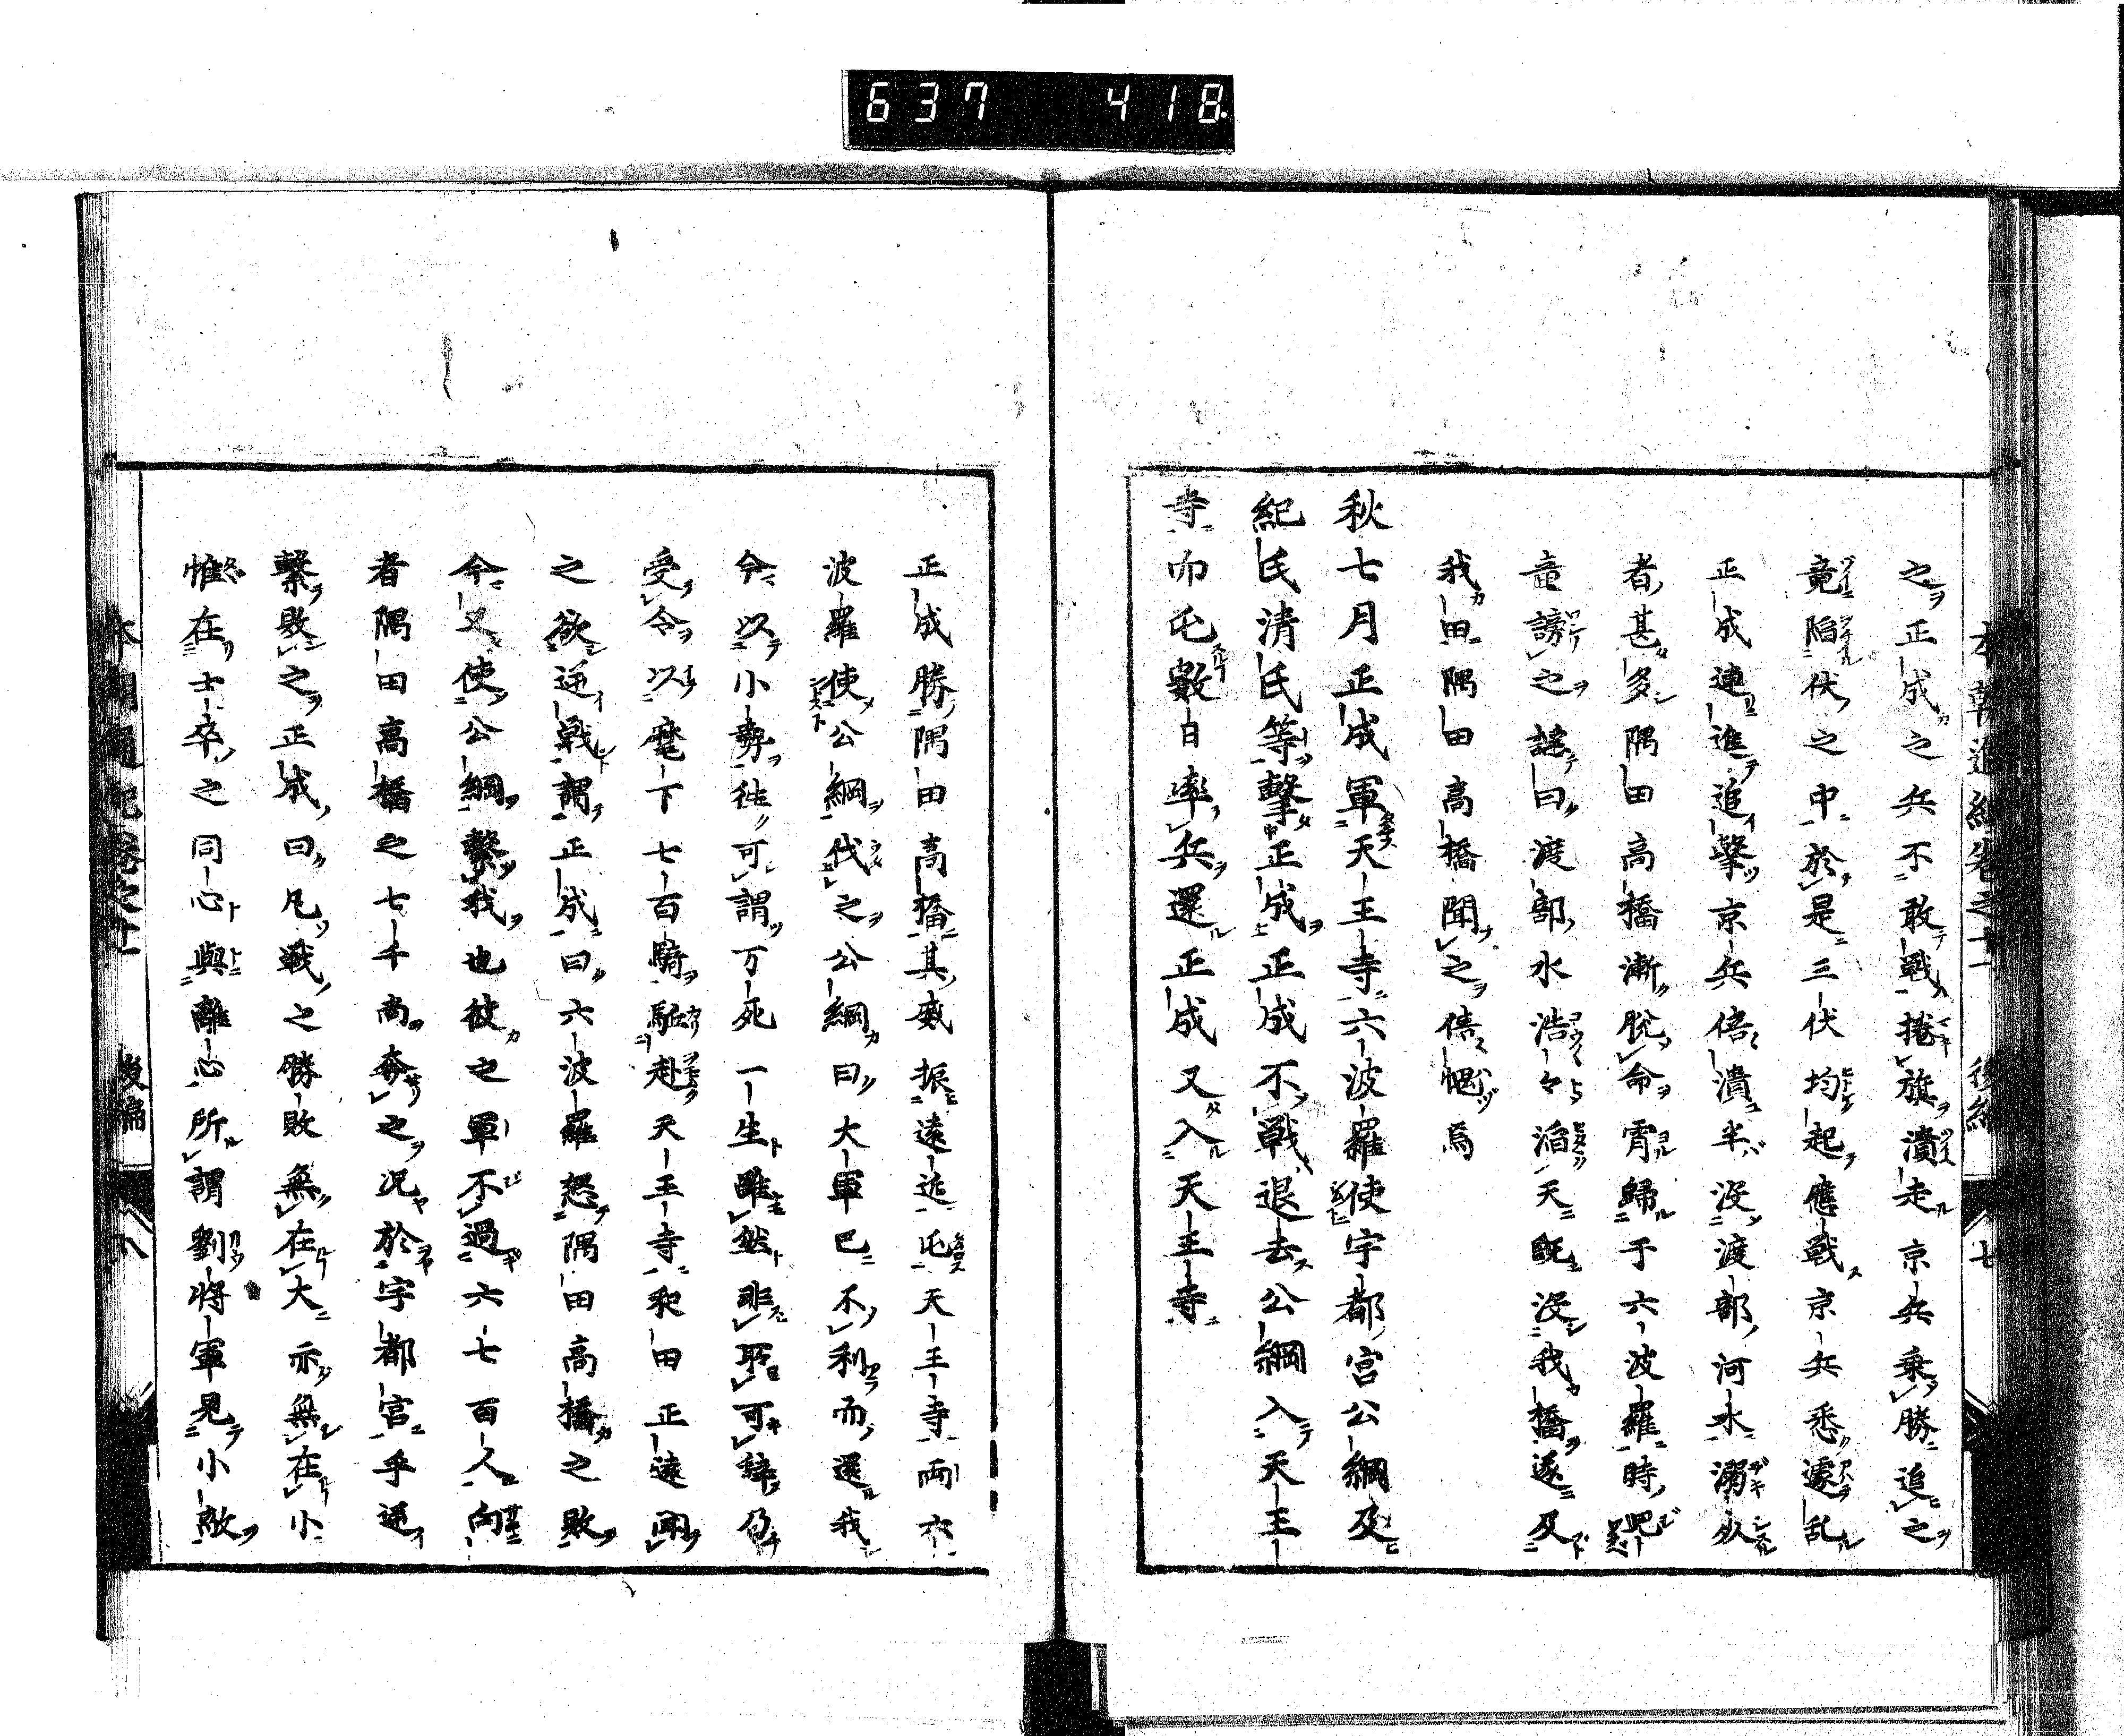 637 418
之正成之兵不敢戰捲旗潰走京兵乗勝追之
竟陷伏之中於是三伏均起應戰京兵悉遽乱
正成連進追擊京兵倍潰半沒渡部河水溺死
者甚多隅田高橋漸脫命霄歸于六波羅時
童謗之謠曰渡部水浩々滔天既沒我橋遂及
我田隅田高橋聞之倍愧焉
秋七月正成軍天王寺六波羅使宇都宮公綱及
紀氏清氏等擊正成正成不戰退去公綱入天王
寺而屯數日率兵還正成又入天王寺
正成勝隅田高橋其威振遠近屯天王寺兩六
波羅使公綱伐之公綱曰大軍已不利而還我
今以小勢往可謂万死一生雖然非可辭乃
受令以麾下七百騎馳赴天王寺和田正遠聞
之欲逆戰謂正成曰六波羅怒隅田高橋之敗
今又使公綱擊我也彼之軍不過六七百人向
者隅田高橋之七千尚奔之況於宇都宮乎逆
擊敗之正成曰凡戰之勝敗無在大亦無在小
惟在士卒之同心與離心所謂劉將軍見小敵
後編 八